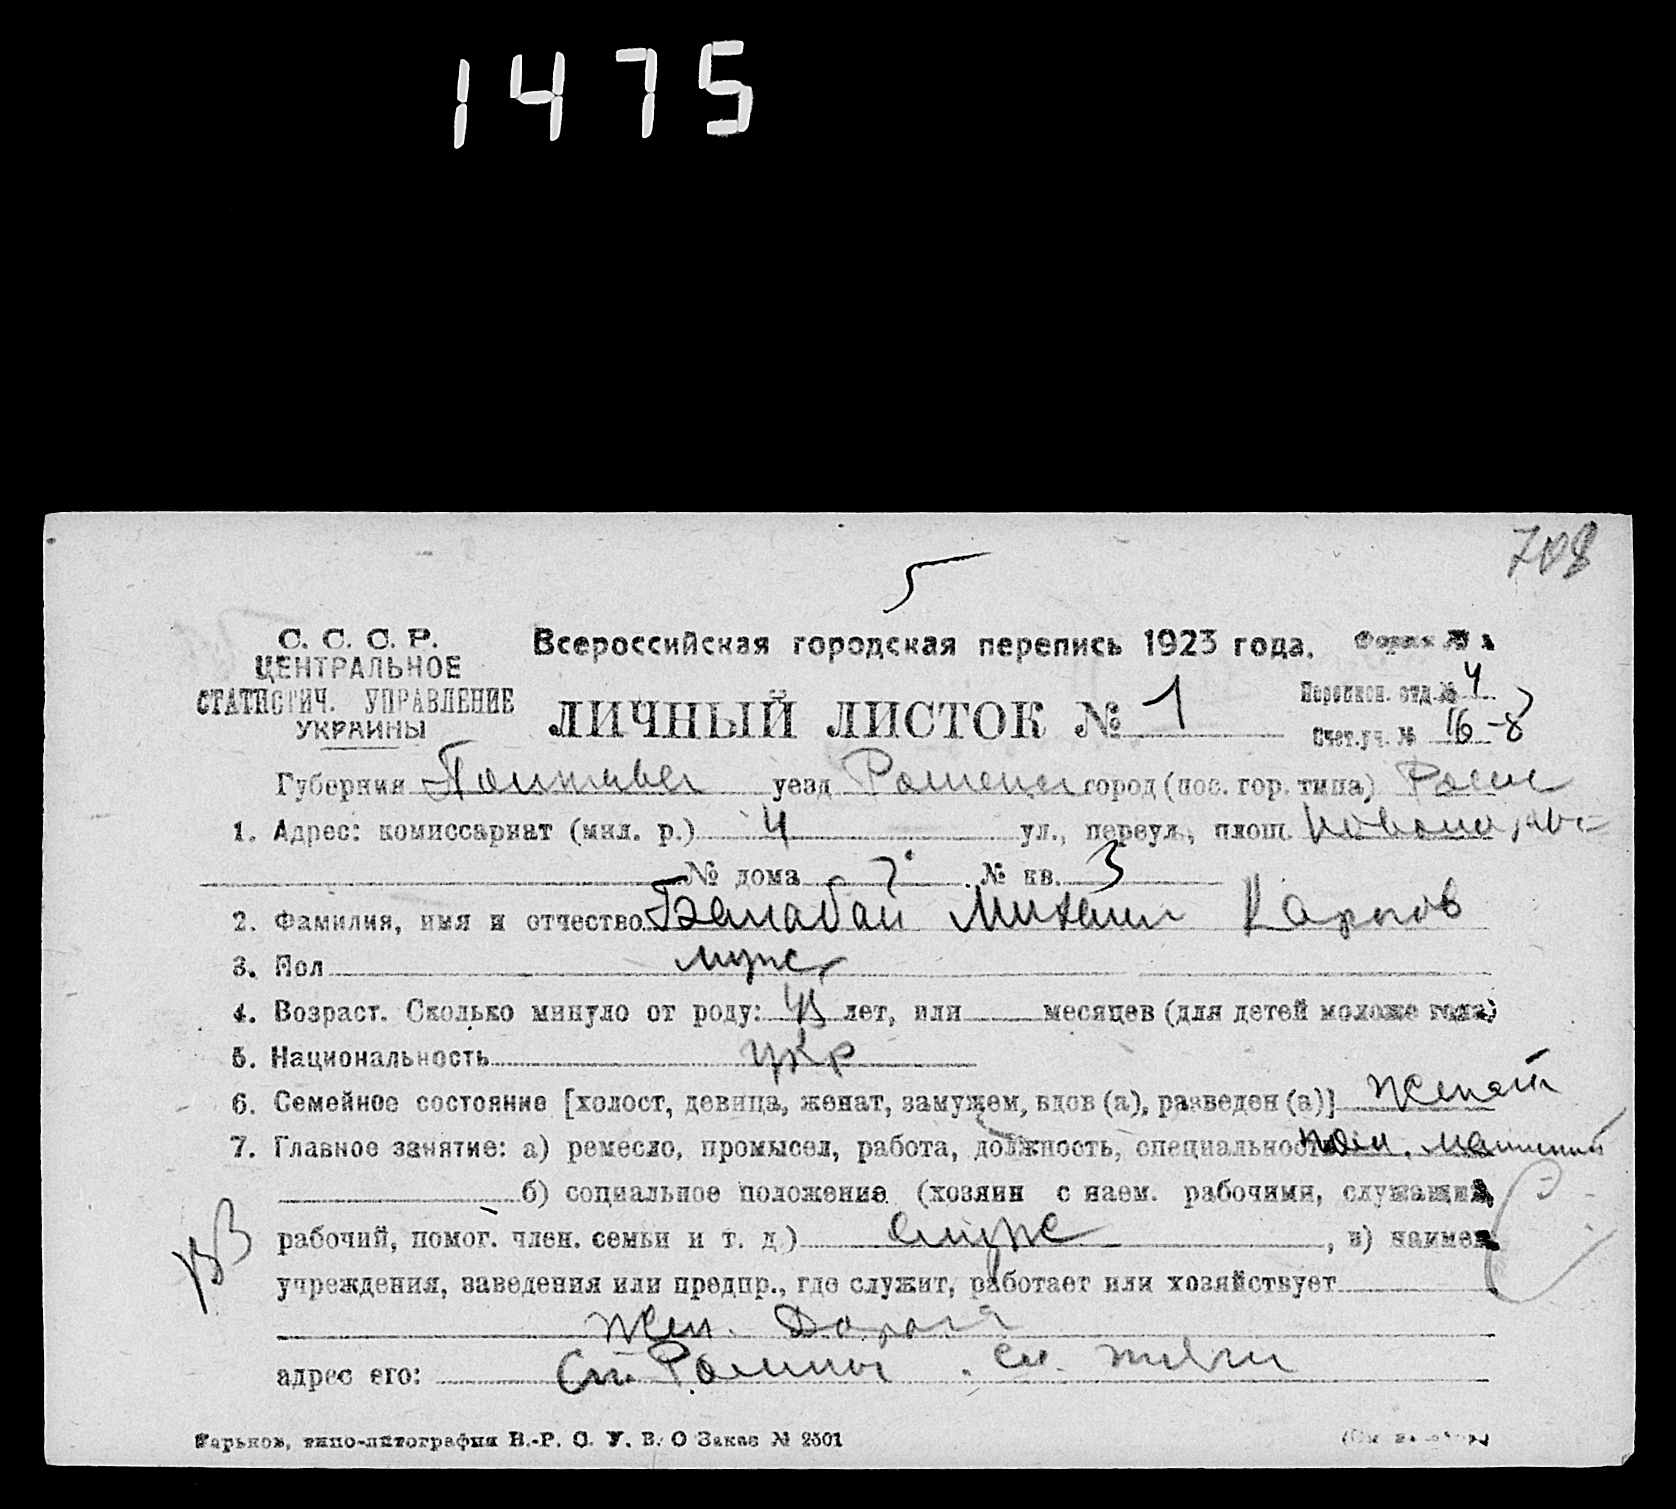 1475
708
5
С. С. С. Р.
ЦЕНТРАЛЬНОЕ
СТАТИСТИЧ. УПРАВЛЕНИЕ
УКРАИНЫ
Всероссийская городская перепись 1923 года.
Форма №
ЛИЧНЫЙ ЛИСТОК № 1
Переписн. отд. № 4
Счет.уч. № 16-8
Губерния Полтавск уезд Роменск город (пос. гор. типа) Ромн
1. Адрес: комиссариат (мил. р.) 4 ул., переул., площ.
№ дома 7 № кв. 3
2. Фамилия, имя и отчество Балабай Михаил Карпов
3. Пол мужс
4. Возраст. Сколько минуло от роду: лет, или месяцев (для детей моложе года)
5. Национальность укр
6. Семейное состояние [холост, девица, женат, замужем, вдов (а), разведен (а)] Женат
7. Главное занятие: а) ремесло, промысел, работа, должность, специальность пом. машинис
б) социальное положение (хозяин с наем. рабочими, служащий,
рабочий, помог. член. семьи и т. д.) служ , в) наимен.
учреждения, заведения или предпр., где служит, работает или хозяйствует
Жел. Дорога
адрес его: Ст. Ромны сл. тяги
Харьков, типо-литография В.-Р. О. У. В. О Заказ № 2501